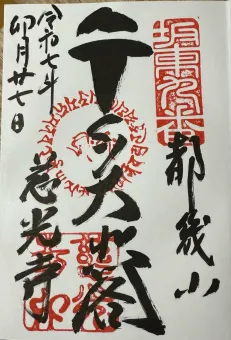 坂東第九番
都幾山
千手大悲閣
慈光寺
令和七年
卯月廿七日